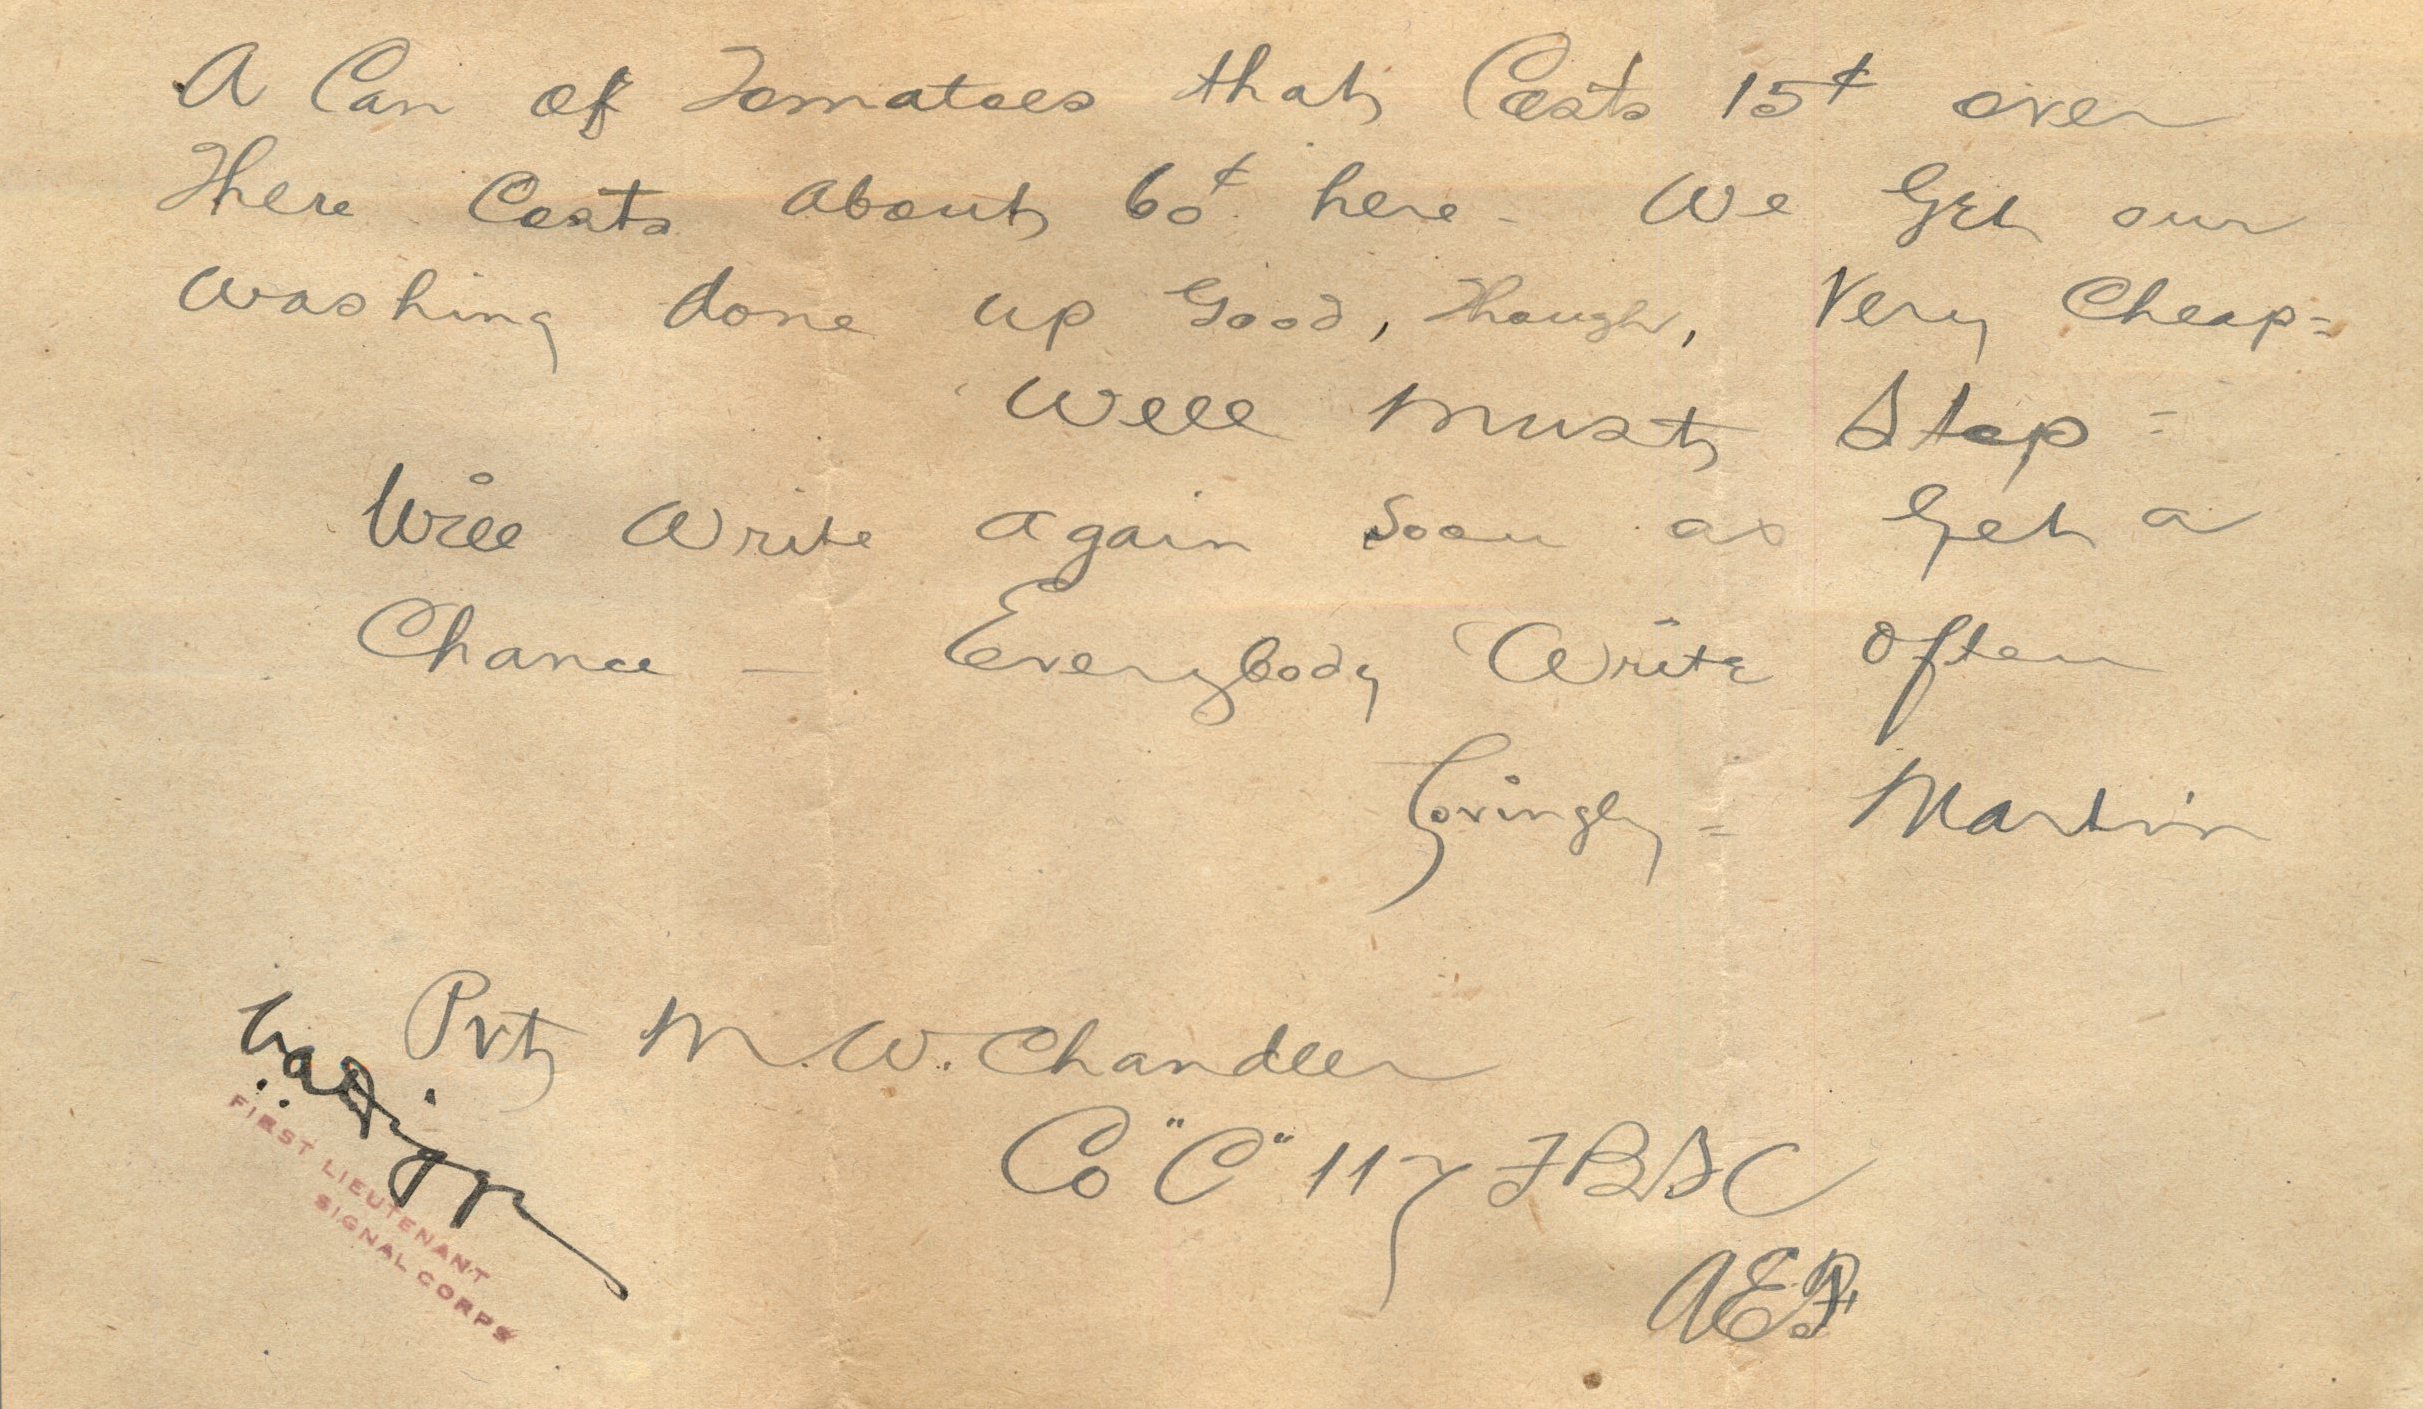 A Can of Tomatoes that Costs 15¢ over
There Costs About 60¢ here - We Get our
Washing done up Good, Though, Very Cheap=
Well Must Stop =
Will Write Again Soon as Get a
Chance — Everybody Write often
Lovingly = Martin
Pvt M.W. Chandler
Co "C" 117 FBSC
AEF
FIRST LIEUTENANT
SIGNAL CORPS